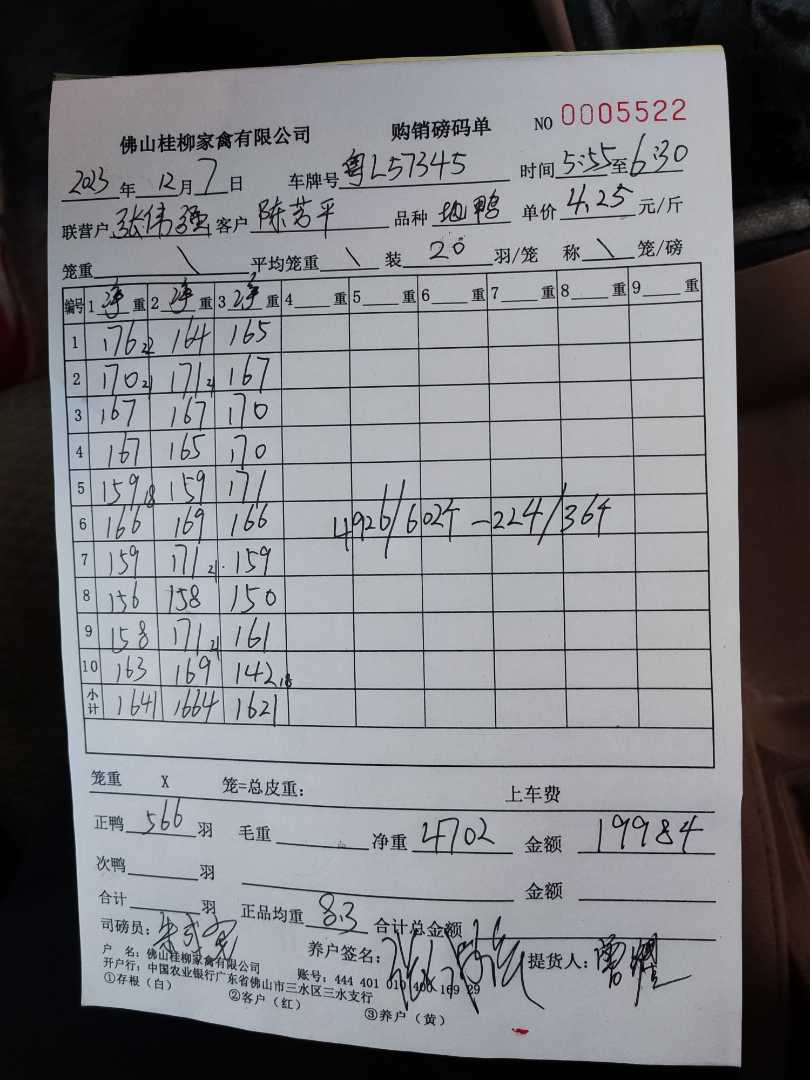 佛山桂柳家禽有限公司 购销磅码单 NO 0005522
2023年12月7日 车牌号粤L57345 时间5:55至6:30
联营户张伟强 客户陈芳平 品种 鸭 单价4.25元/斤
笼重\ 平均笼重\ 装20羽/笼 称\笼/磅
编号 1净重 2净重 3净重 4重 5重 6重 7重 8重 9重
1 176 22 164 165
2 170 21 171 21 167
3 167 167 170
4 167 165 170
5 159 18 159 171
6 166 169 166 4926/602斤-224/36斤
7 159 171 21 159
8 156 158 150
9 158 171 21 161
10 163 169 142 18
小计 1641 1664 1621
笼重 X 笼=总皮重: 上车费
正鸭566羽 毛重 净重4702 金额19984
次鸭羽 金额
合计羽 正品均重8.3 合计总金额
司磅员: 养户签名: 提货人:
户 名:佛山桂柳家禽有限公司 账号:444 401 010 400 169 29
开户行:中国农业银行广东省佛山市三水区三水支行
①存根(白) ②客户(红) ③养户(黄)